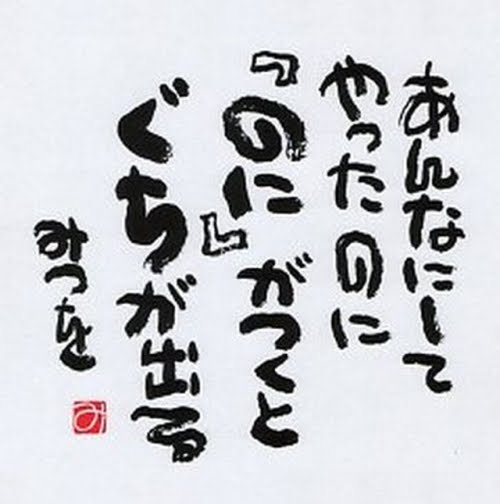 あんなにして
やったのに
『のに』がつくと
ぐちが出る
みつを
み